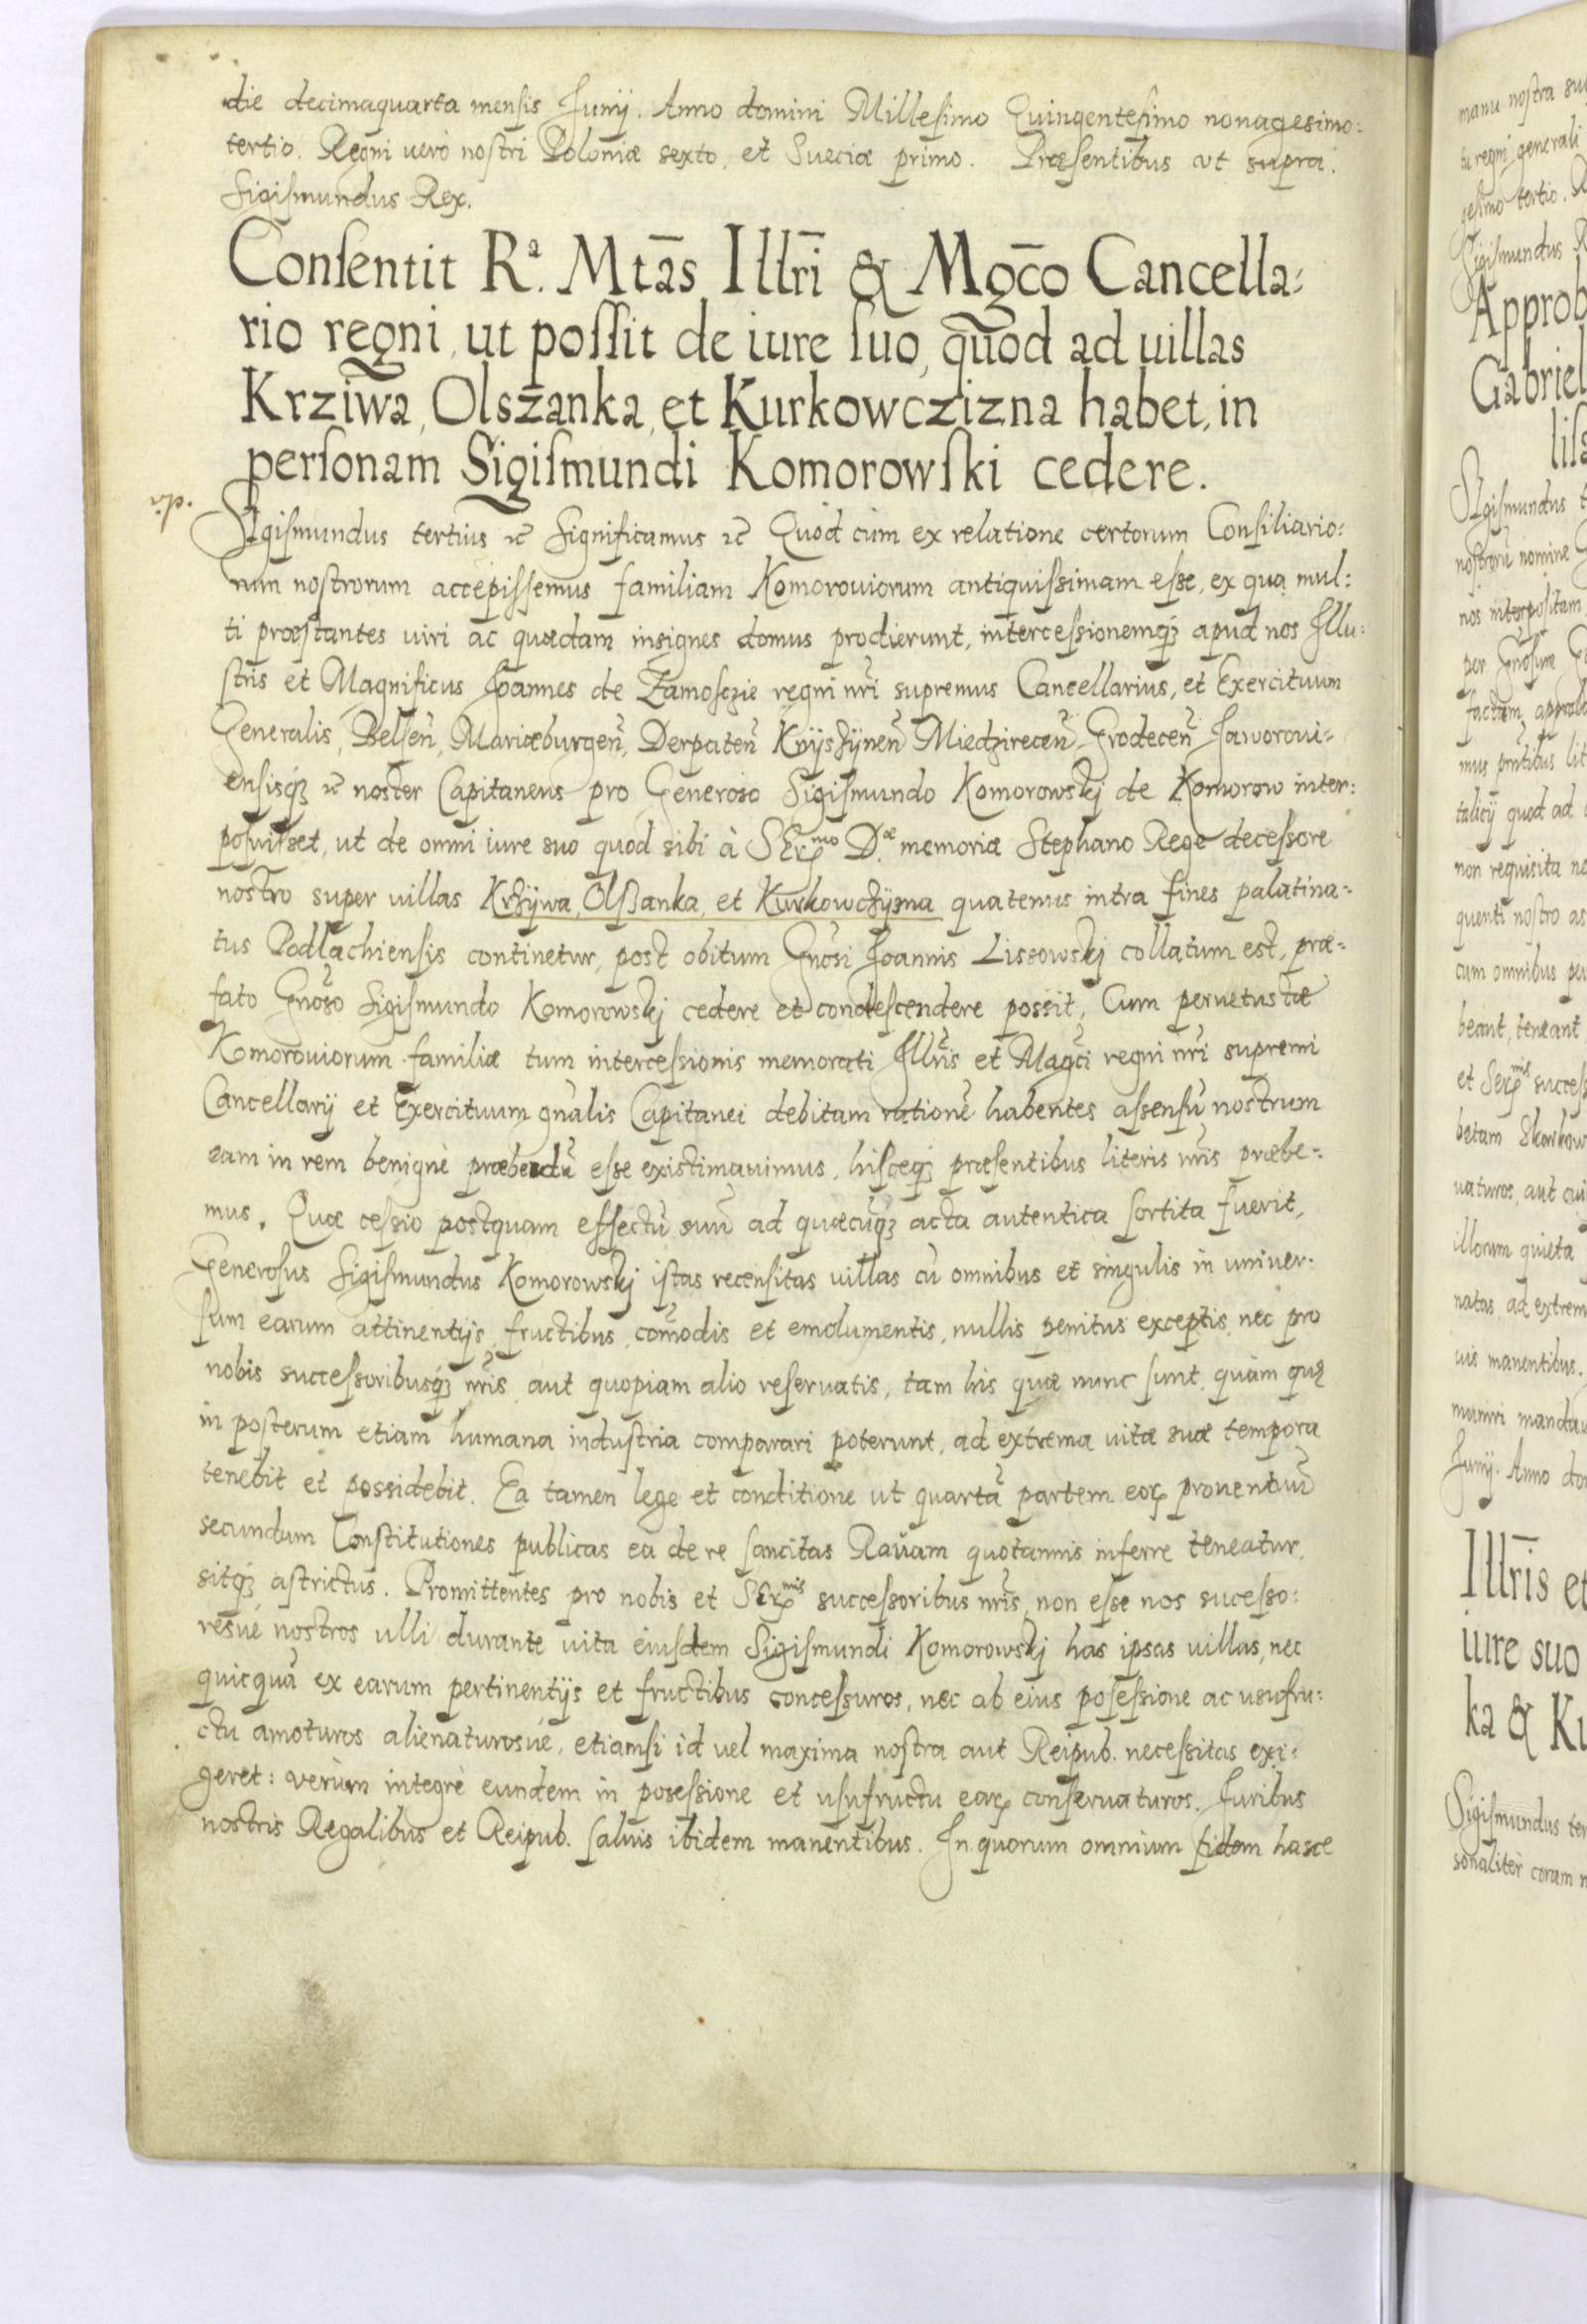 die decimaquarta mensis Junij. Anno domini Millesimo Quingentesimo nonagesimo:
tertio. Regni verò nostri Poloniæ sexto, et Sueciæ primo. Præsentibus vt supra.
Sigismundus Rex.
Consentit Rª. Mtās Illrī & Mgcō Cancella:
rio regni, ut possit de iure suo, quod ad uillas
Krziwa, Olszanka, et Kurkowczizna habet, in
personam Sigismundi Komorowski cedere.
Sigismundus tertius etc Significamus etc Quòd cùm ex relatione certorum Consiliario:
rum nostrorum accepissemus familiam Komorouiorum antiquissimam esse, ex qua mul:
ti præstantes uiri ac quædam insignes domus prodierunt, intercessionemq3 apud nos Illu:
stris et Magnificus Joannes de Zamosczie regni nr̃i supremus Cancellarius, et Exercituum
Generalis, Belseñ, Mariæburgeñ, Derpateñ Knijszijneñ Miedzireceñ Grodeceñ Jaworoui=
ensisq3 etc noster Capitaneus pro Generoso Sigismundo Komorowskj de Komorow inter:
posuisset, ut de omni iure suo quod sibi à SErͫᵒ D.æ memoriæ Stephano Rege decessore
nostro super uillas Krzijwa, Olszanka, et Kurkowczijzna quatenus intra fines palatina=
tus Podlachiensis continetur, post obitum Gnosi Joannis Lissowskj collatum est, præ=
fato Gnoso Sigismundo Komorowskj cedere et condescendere possit, Cum peruetustæ
Komorouiorum familiæ tum intercessionis memorati Illr̃is et Magci regni nr̃i supremi
Cancellarij et Exercituum gnalis Capitanei debitam rationẽ habentes assensũ nostrum
eam in rem benignè præbendũ esse existimauimus, hisceq3 præsentibus literis nr̃is præbe=
mus. Quæ cessio postquam effectũ suũ ad quæcũq3 acta autentica sortita fuerit,
Generosus Sigismundus Komorowskj istas recensitas uillas cũ omnibus et singulis in uniuer:
sum earum attinentijs, fructibus, com̃odis et emolumentis, nullis penitus exceptis, nec pro
nobis successoribusq3 nr̃is, aut quopiam alio reseruatis, tam his quæ nunc sunt, quàm quę
in posterum etiam humana industria comparari poterunt, ad extrema uitæ suæ tempora
tenebit et possidebit. Ea tamen lege et conditione ut quartã partem eoꝝ prouentuũ
secundum Constitutiones publicas ea de re sancitas Rauam quotannis inferre teneatur,
sitq3 astrictus. Promittentes pro nobis et SErͫⁱˢ successoribus nr̃is, non esse nos sucesso:
resuè nostros ulli durante uita eiusdem Sigismundi Komorowskj has ipsas uillas, nec
quicquã ex earum pertinentijs et fructibus concessuros, nec ab eius posessione ac usufru:
ctu amoturos alienaturosuè, etiamsi id vel maxima nostra aut Reipub. necessitas exi:
geret: verùm integrè eundem in posessione et usufructu eaꝝ conseruaturos. Juribus
nostris Regalibus et Reipub. saluis ibidem manentibus. In quorum omnium fidem hasce